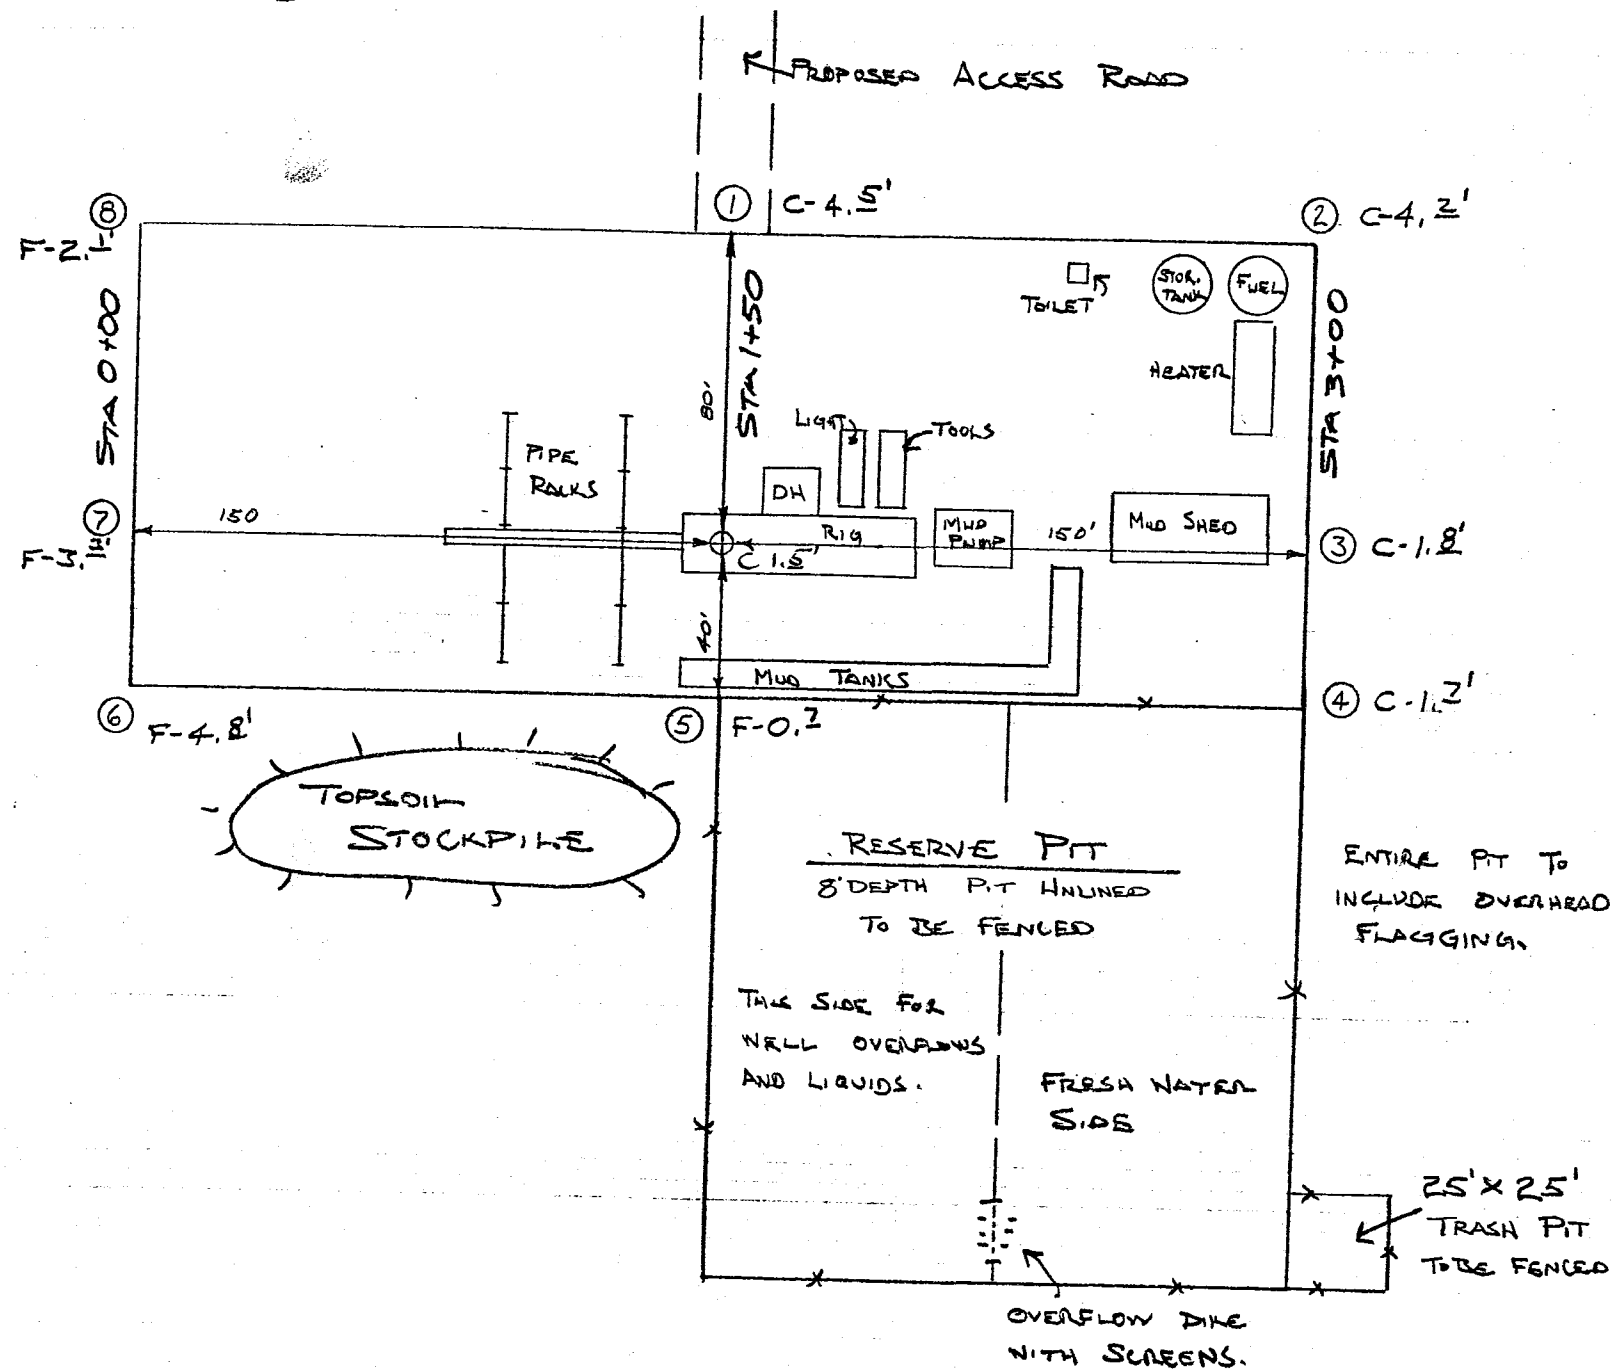 PROPOSED ACCESS ROAD
1 C-4.5'
2 C-4.2'
8
F-2.1
STA 0+00
STA 1+50
STA 3+00
TOILET
STOR. TANK
FUEL
HEATER
80'
LIGHT
TOOLS
PIPE
RACKS
DH
7
F-3.
150
RIG
C 1.5'
MUD
PUMP
150'
MUD SHED
3 C-1.8'
40'
MUD TANKS
6 F-4.8'
5 F-0.7
4 C-1.7'
TOPSOIL
STOCKPILE
RESERVE PIT
8' DEPTH PIT UNLINED
TO BE FENCED
ENTIRE PIT TO
INCLUDE OVERHEAD
FLAGGING.
THIS SIDE FOR
WELL OVERFLOWS
AND LIQUIDS.
FRESH WATER
SIDE
25' X 25'
TRASH PIT
TO BE FENCED
OVERFLOW DIKE
WITH SCREENS.